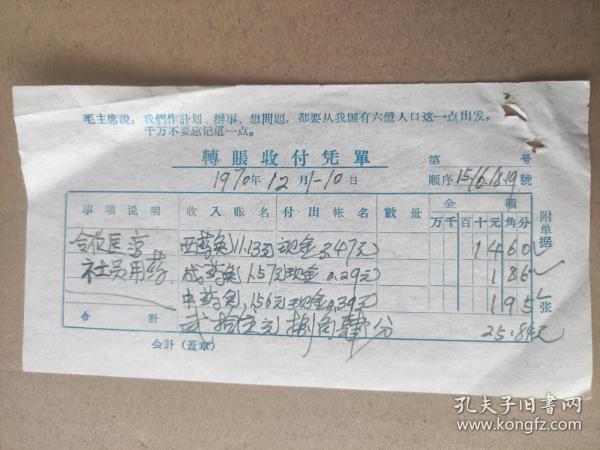 毛主席說：我們作計划、辦事、想問題，都要从我国有六億人口这一点出发，
千万不要忘記這一点。
轉賬收付凭單
第 号
1970年12月1-10日
順序15/16.18.19號
事項說明 收入賬名 付出帐名 數量 金額 附单据
万千百十元角分
合作医疗 西药 11.13元 现金3.47元 1460
社员用药 成药 1.57元 现金0.29元 186
中药 1.56元 现金0.39元 195 张
合計 贰拾伍元捌角肆分 25.84元
会計(蓋章)
孔夫子旧書网
www.kongfz.com